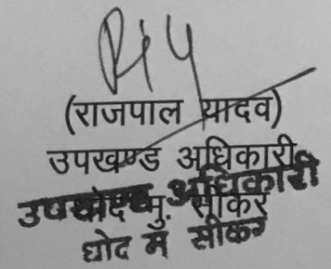 (राजपाल यादव)
उपखण्ड अधिकारी
उपखण्ड अधिकारी
धोद मु. सीकर
धोद मु सीकर